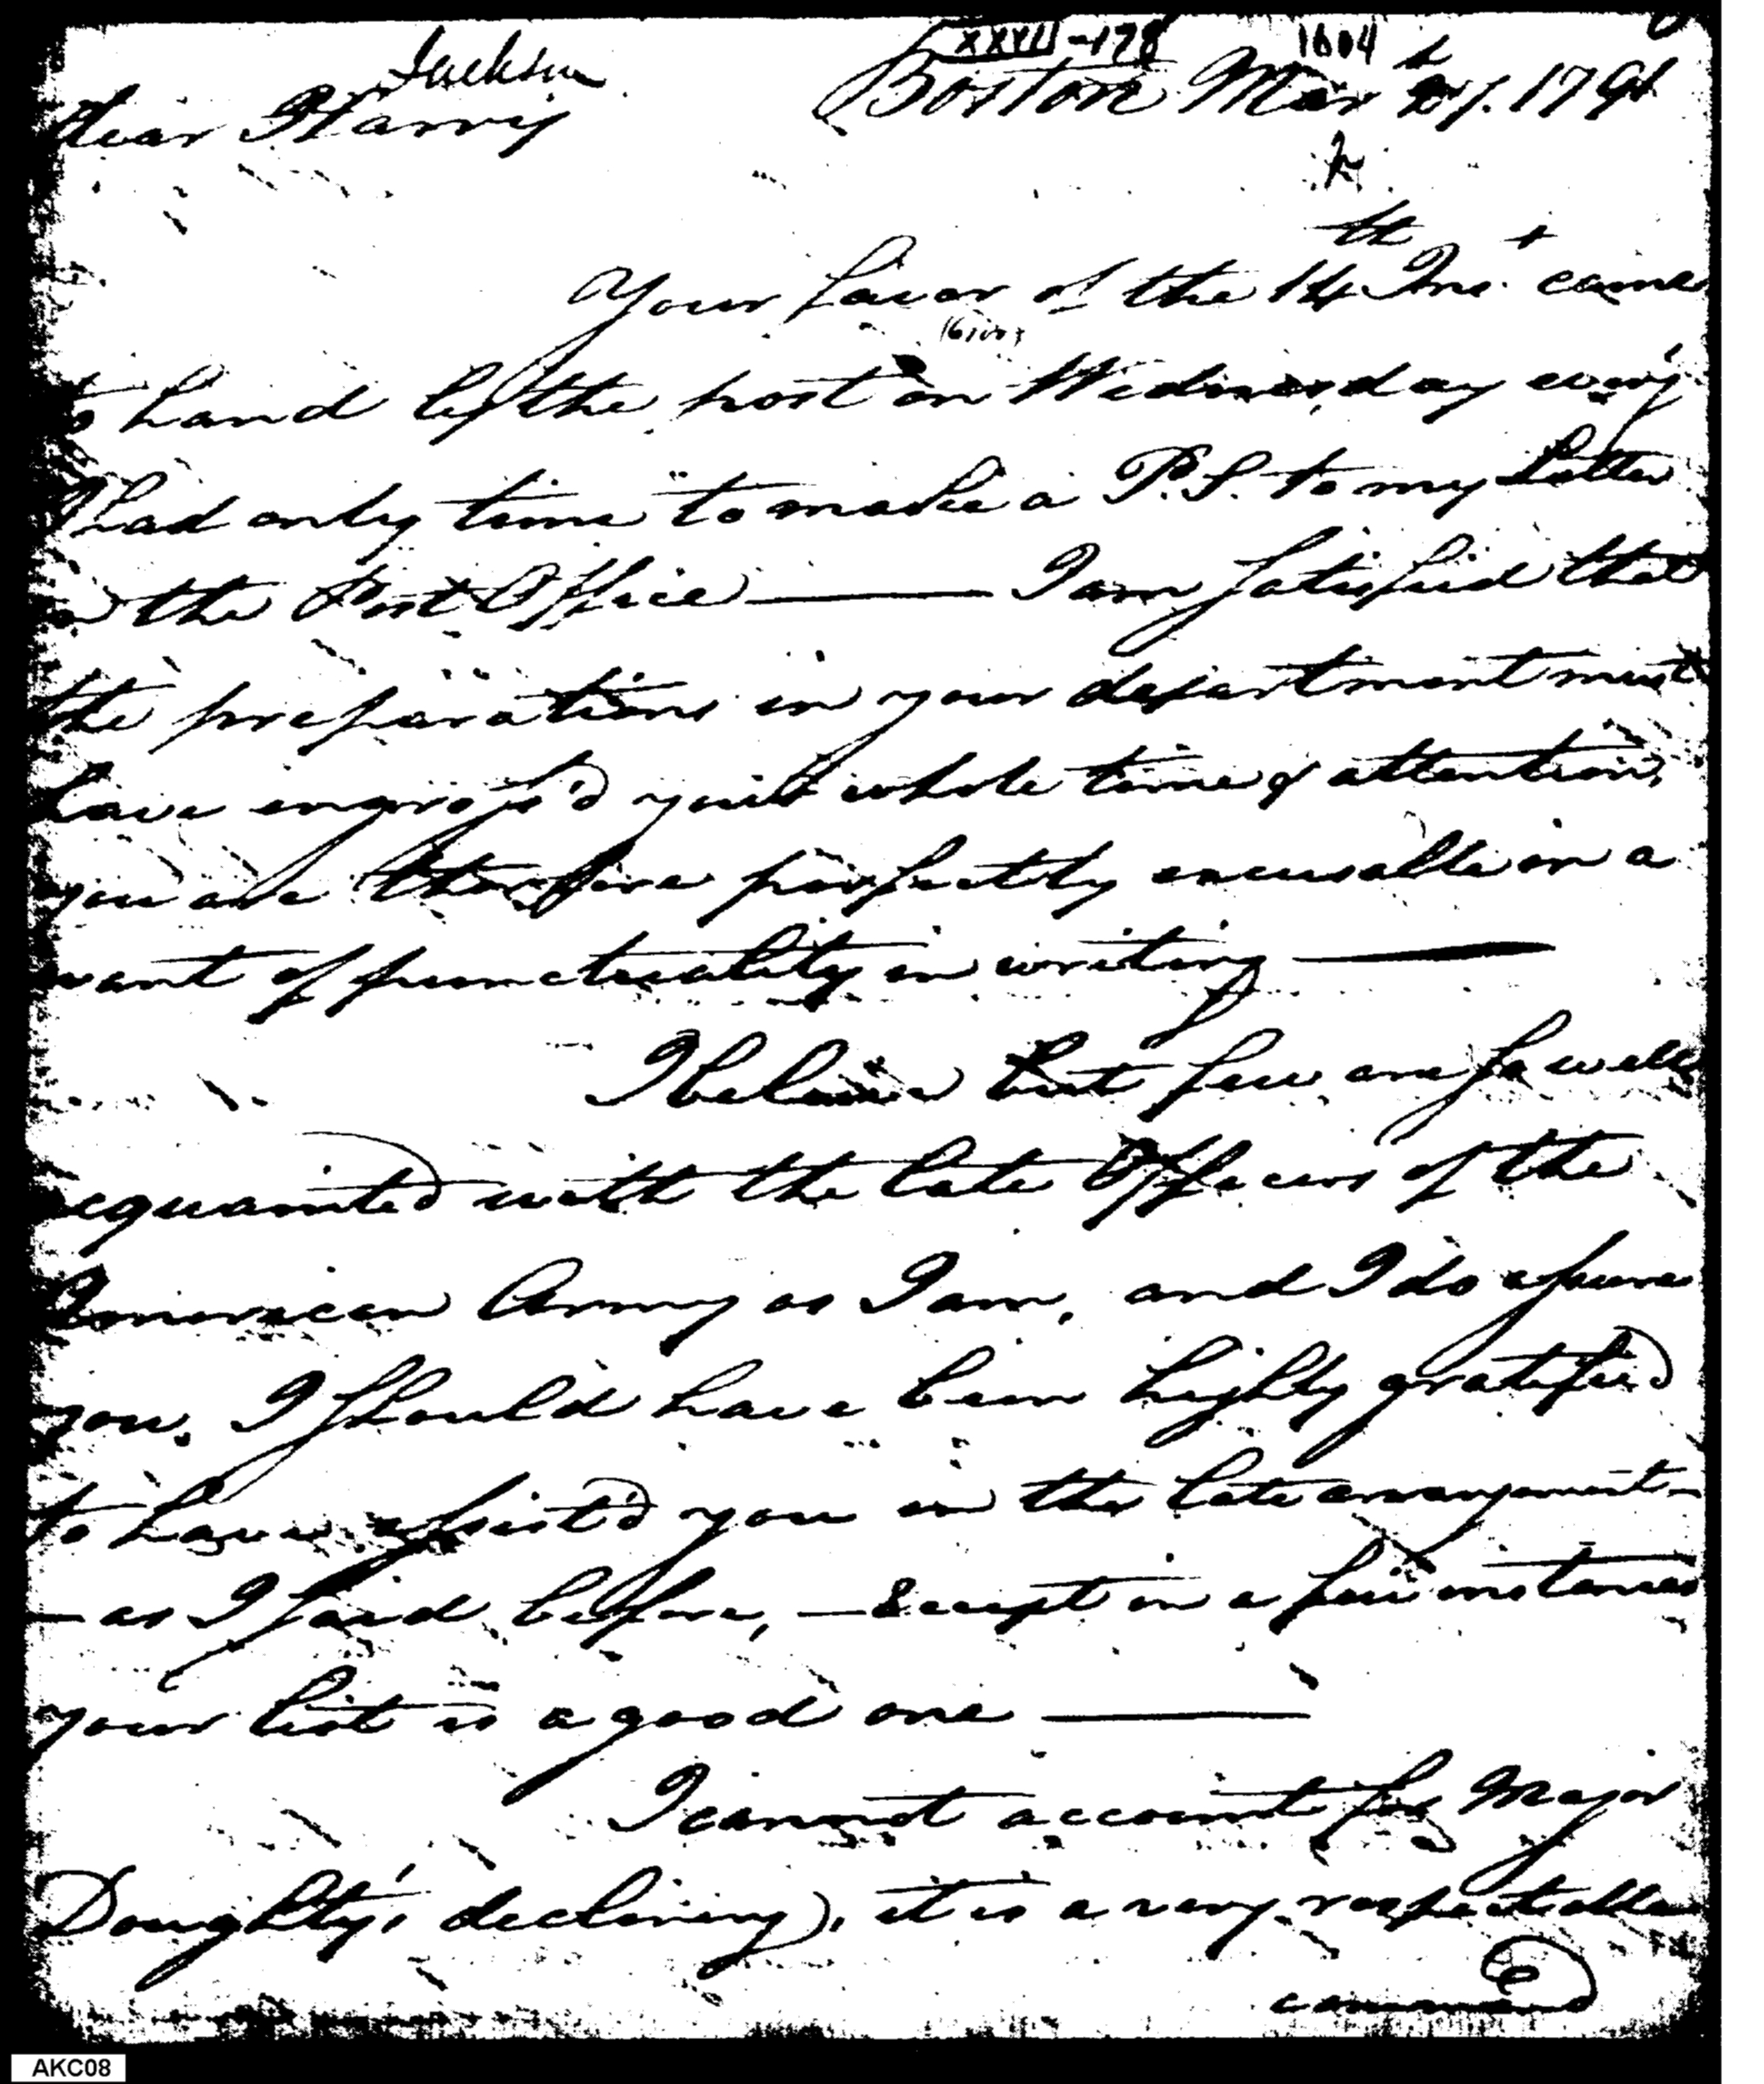 XXVII-178 1604
Jackson
Boston Mar 27. 1791
Dear Harry
Your favor of the 14th Inst. came
(6100)
to hand by the post on Wednesday eveng
I had only time to make a P.S. to my Letter
in the Post Office — I am satisfied that
the preparations in your department must
have engross'd your whole time & attention,
you are therefore perfectly excusable in a
want of punctuality in writing —
I believe but few are so well
acquainted with the late Officers of the
American Army as I am, and I do assure
you, I should have been highly gratified
to have assist'd you in the late arrangement—
— as I said before, — Except in a few instances
your list is a good one —
I cannot account for Major
Doughty's declining, it is a very respectable
command
AKC08